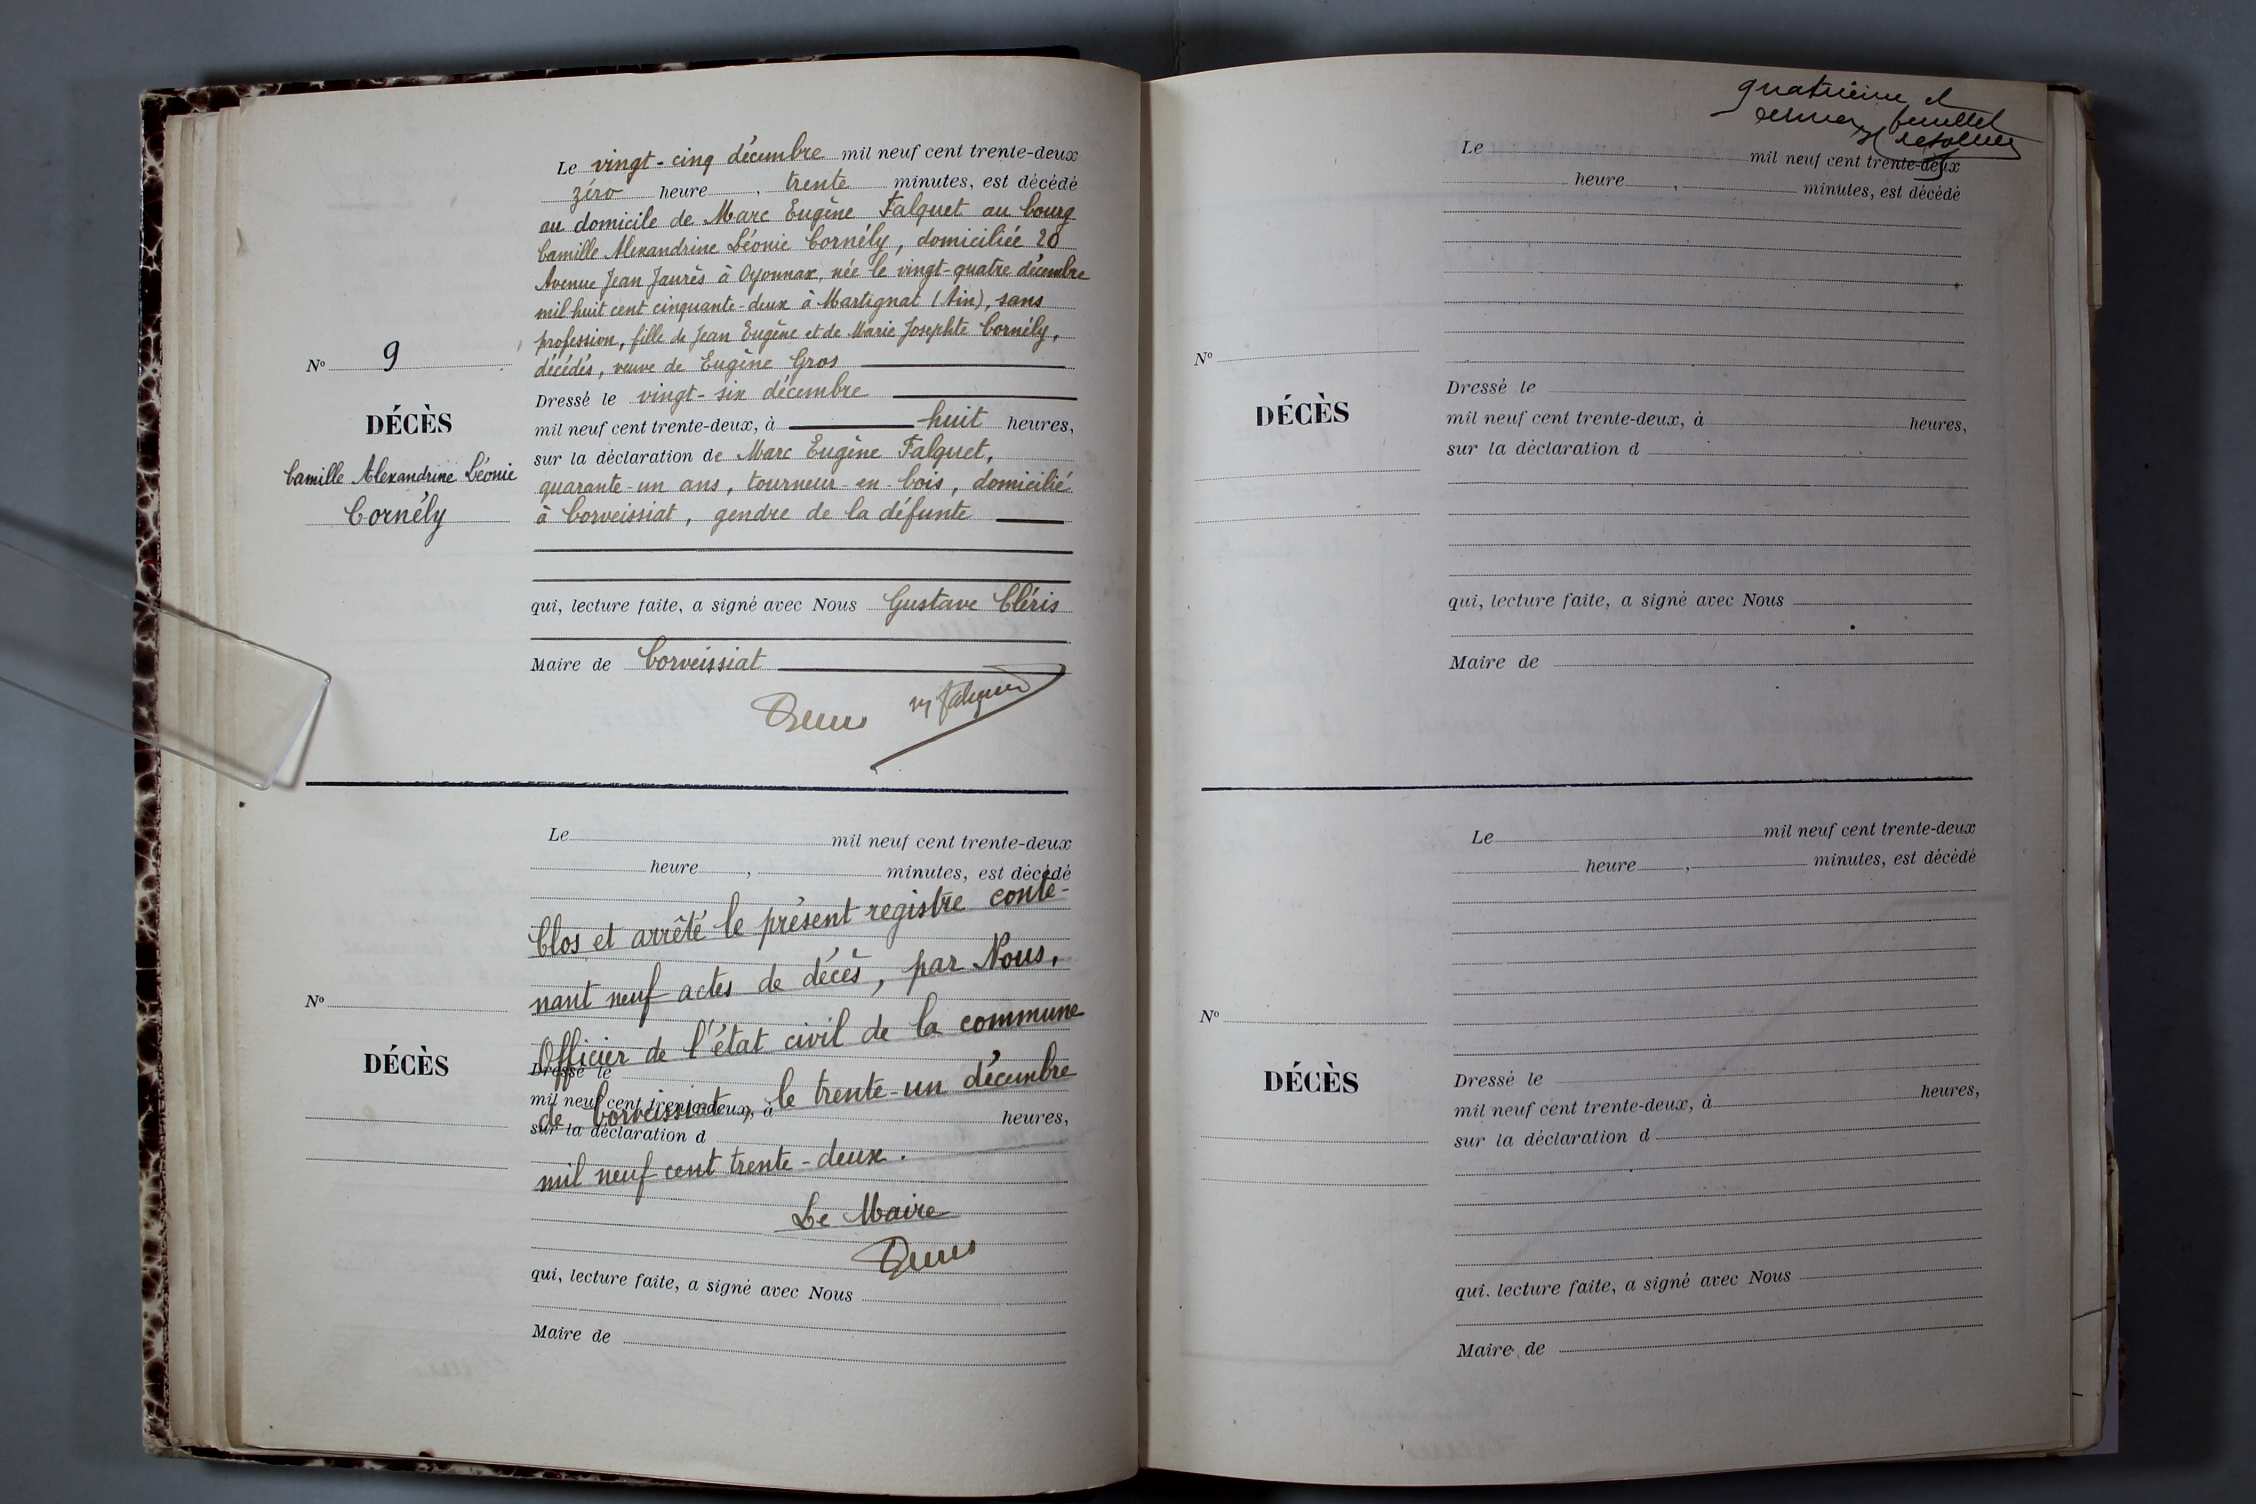 Le vingt-cinq décembre mil neuf cent trente-deux
zéro heure, trente minutes, est décédé
au domicile de Marc Eugène Falquet au bourg
Camille Alexandrine Léonie Cornély, domiciliée 20
Avenue Jean Jaurès à Oyonnax, née le vingt-quatre décembre
mil huit cent cinquante-deux à Martignat (Ain), sans
profession, fille de Jean Eugène et de Marie Josephte Cornély,
décédés, veuve de Eugène Gros
Dressé le vingt-six décembre
mil neuf cent trente-deux, à huit heures,
sur la déclaration de Marc Eugène Falquet,
quarante-un ans, tourneur-en-bois, domicilié
à Corveissiat, gendre de la défunte
qui, lecture faite, a signé avec Nous Gustave Cléris
Maire de Corveissiat
M Falquet
No 9
DÉCÈS
Camille Alexandrine Léonie
Cornély
Le mil neuf cent trente-deux
heure, minutes, est décédé
Clos et arrêté le présent registre conte-
nant neuf actes de décès, par Nous,
Officier de l'état civil de la commune
Dressé le
de Corveissiat, le trente-un décembre
mil neuf cent trente-deux, à heures,
sur la déclaration d
mil neuf cent trente-deux.
Le Maire
qui, lecture faite, a signé avec Nous
Maire de
No
DÉCÈS
quatrième et
dernier feuillet
Le mil neuf cent trente-deux
heure, minutes, est décédé
No
DÉCÈS
Dressé le
mil neuf cent trente-deux, à heures,
sur la déclaration d
qui, lecture faite, a signé avec Nous
Maire de
Le mil neuf cent trente-deux
heure, minutes, est décédé
No
DÉCÈS
Dressé le
mil neuf cent trente-deux, à heures,
sur la déclaration d
qui, lecture faite, a signé avec Nous
Maire de